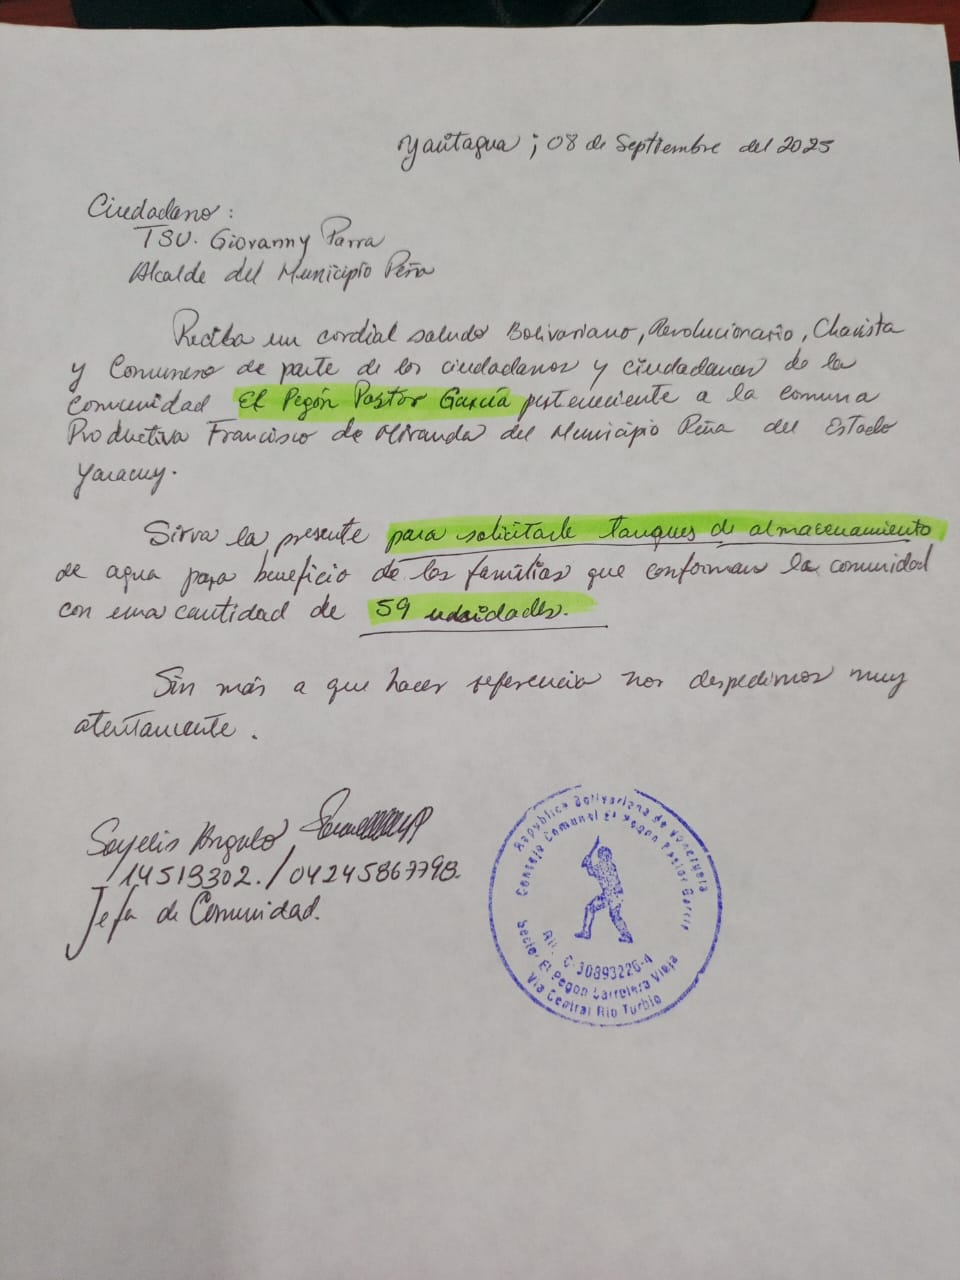 Yaritagua ; 08 de Septiembre del 2025
Ciudadano :
TSU. Giovanny Parra
Alcalde del Municipio Peña
Reciba un cordial saludo Bolivariano, Revolucionario, Chavista
y Comunero de parte de los ciudadanos y ciudadanas de la
comunidad El Pegón Pastor García perteneciente a la comuna
Productiva Francisco de Miranda del Municipio Peña del Estado
Yaracuy.
Sirva la presente para solicitarle tanques de almacenamiento
de agua para beneficio de las familias que conforman la comunidad
con una cantidad de 59 unidades.
Sin más a que hacer referencia nos despedimos muy
atentamente .
Sayelis Angulo
14513302. / 04245867798.
Jefa de Comunidad.
República Bolivariana de Venezuela
Consejo Comunal El Pegon Pastor Garcia
Rif. C-30893226-4
Sector El Pegon Carretera Vieja
Via Central Rio Turbio